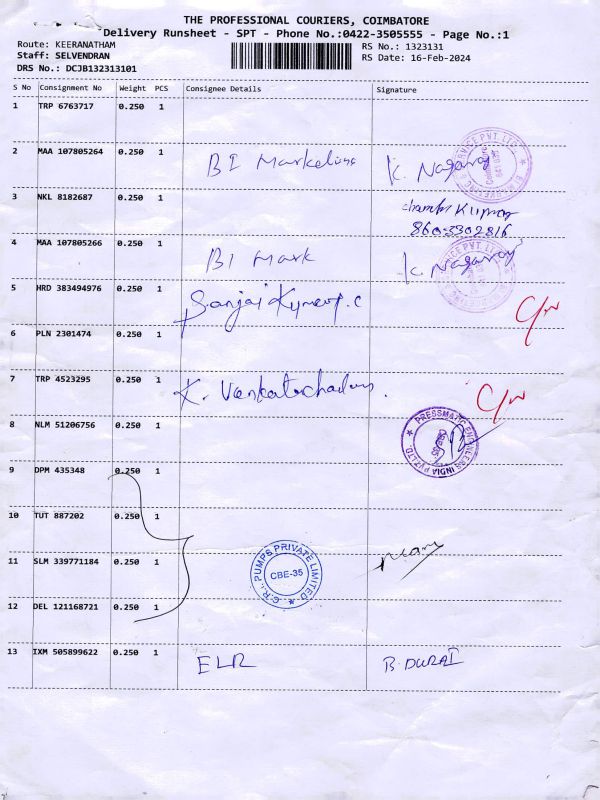 THE PROFESSIONAL COURIERS, COIMBATORE
Delivery Runsheet - SPT - Phone No.:0422-3505555 - Page No.:1
Route: KEERANATHAM
RS No.: 1323131
Staff: SELVENDRAN
RS Date: 16-Feb-2024
DRS No.: DCJB132313101
S No Consignment No Weight PCS Consignee Details Signature
1 TRP 6763717 0.250 1
2 MAA 107805264 0.250 1 BI Marketing K. Nagaraj
3 NKL 8182687 0.250 1
8603302816
4 MAA 107805266 0.250 1 BI Mark K. Nagaraj
5 HRD 383494976 0.250 1 Sanjai Kumar. C
6 PLN 2301474 0.250 1
7 TRP 4523295 0.250 1 K. Venkatachalam.
8 NLM 51206756 0.250 1
PRESSMATIC ENGINEERS INDIA PVT LTD.
9 DPM 435348 0.250 1
10 TUT 887202 0.250 1
11 SLM 339771184 0.250 1
C.R.I. PUMPS PRIVATE LIMITED
CBE-35
12 DEL 121168721 0.250 1
13 IXM 505899622 0.250 1 ELR B. DURAI